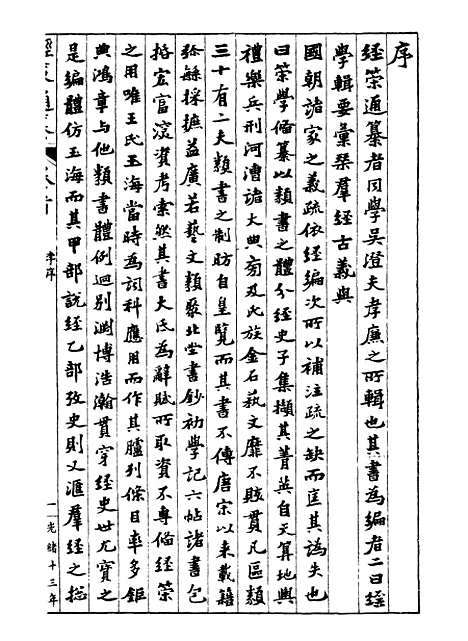 序
經策通纂者同學吳澄夫孝廉之所輯也其書為編者二曰經
學輯要彙萃羣經古義與
國朝諸家之義疏依經編次所以補注疏之缺而匡其譌失也
曰策學備纂以類書之體分經史子集擷其菁英自天算地輿
禮樂兵刑河漕諸大典旁及氏族金石藝文靡不賅貫凡區類
三十有二夫類書之制昉自皇覽而其書不傳唐宋以來載籍
弥繇採摭益廣若藝文類聚北堂書鈔初學記六帖諸書包
括宏富濅資考索然其書大氐為辭賦所取資不專備經策
之用唯王氏玉海當時為詞科應用而作其臚列條目率多鉅
典鴻章与他類書體例迥別淵博浩瀚貫穿經史世尤寶之
是編體仿玉海而其甲部說經乙部攷史則又滙羣經之總
經策通纂
卷首
李序
一
光緒十三年